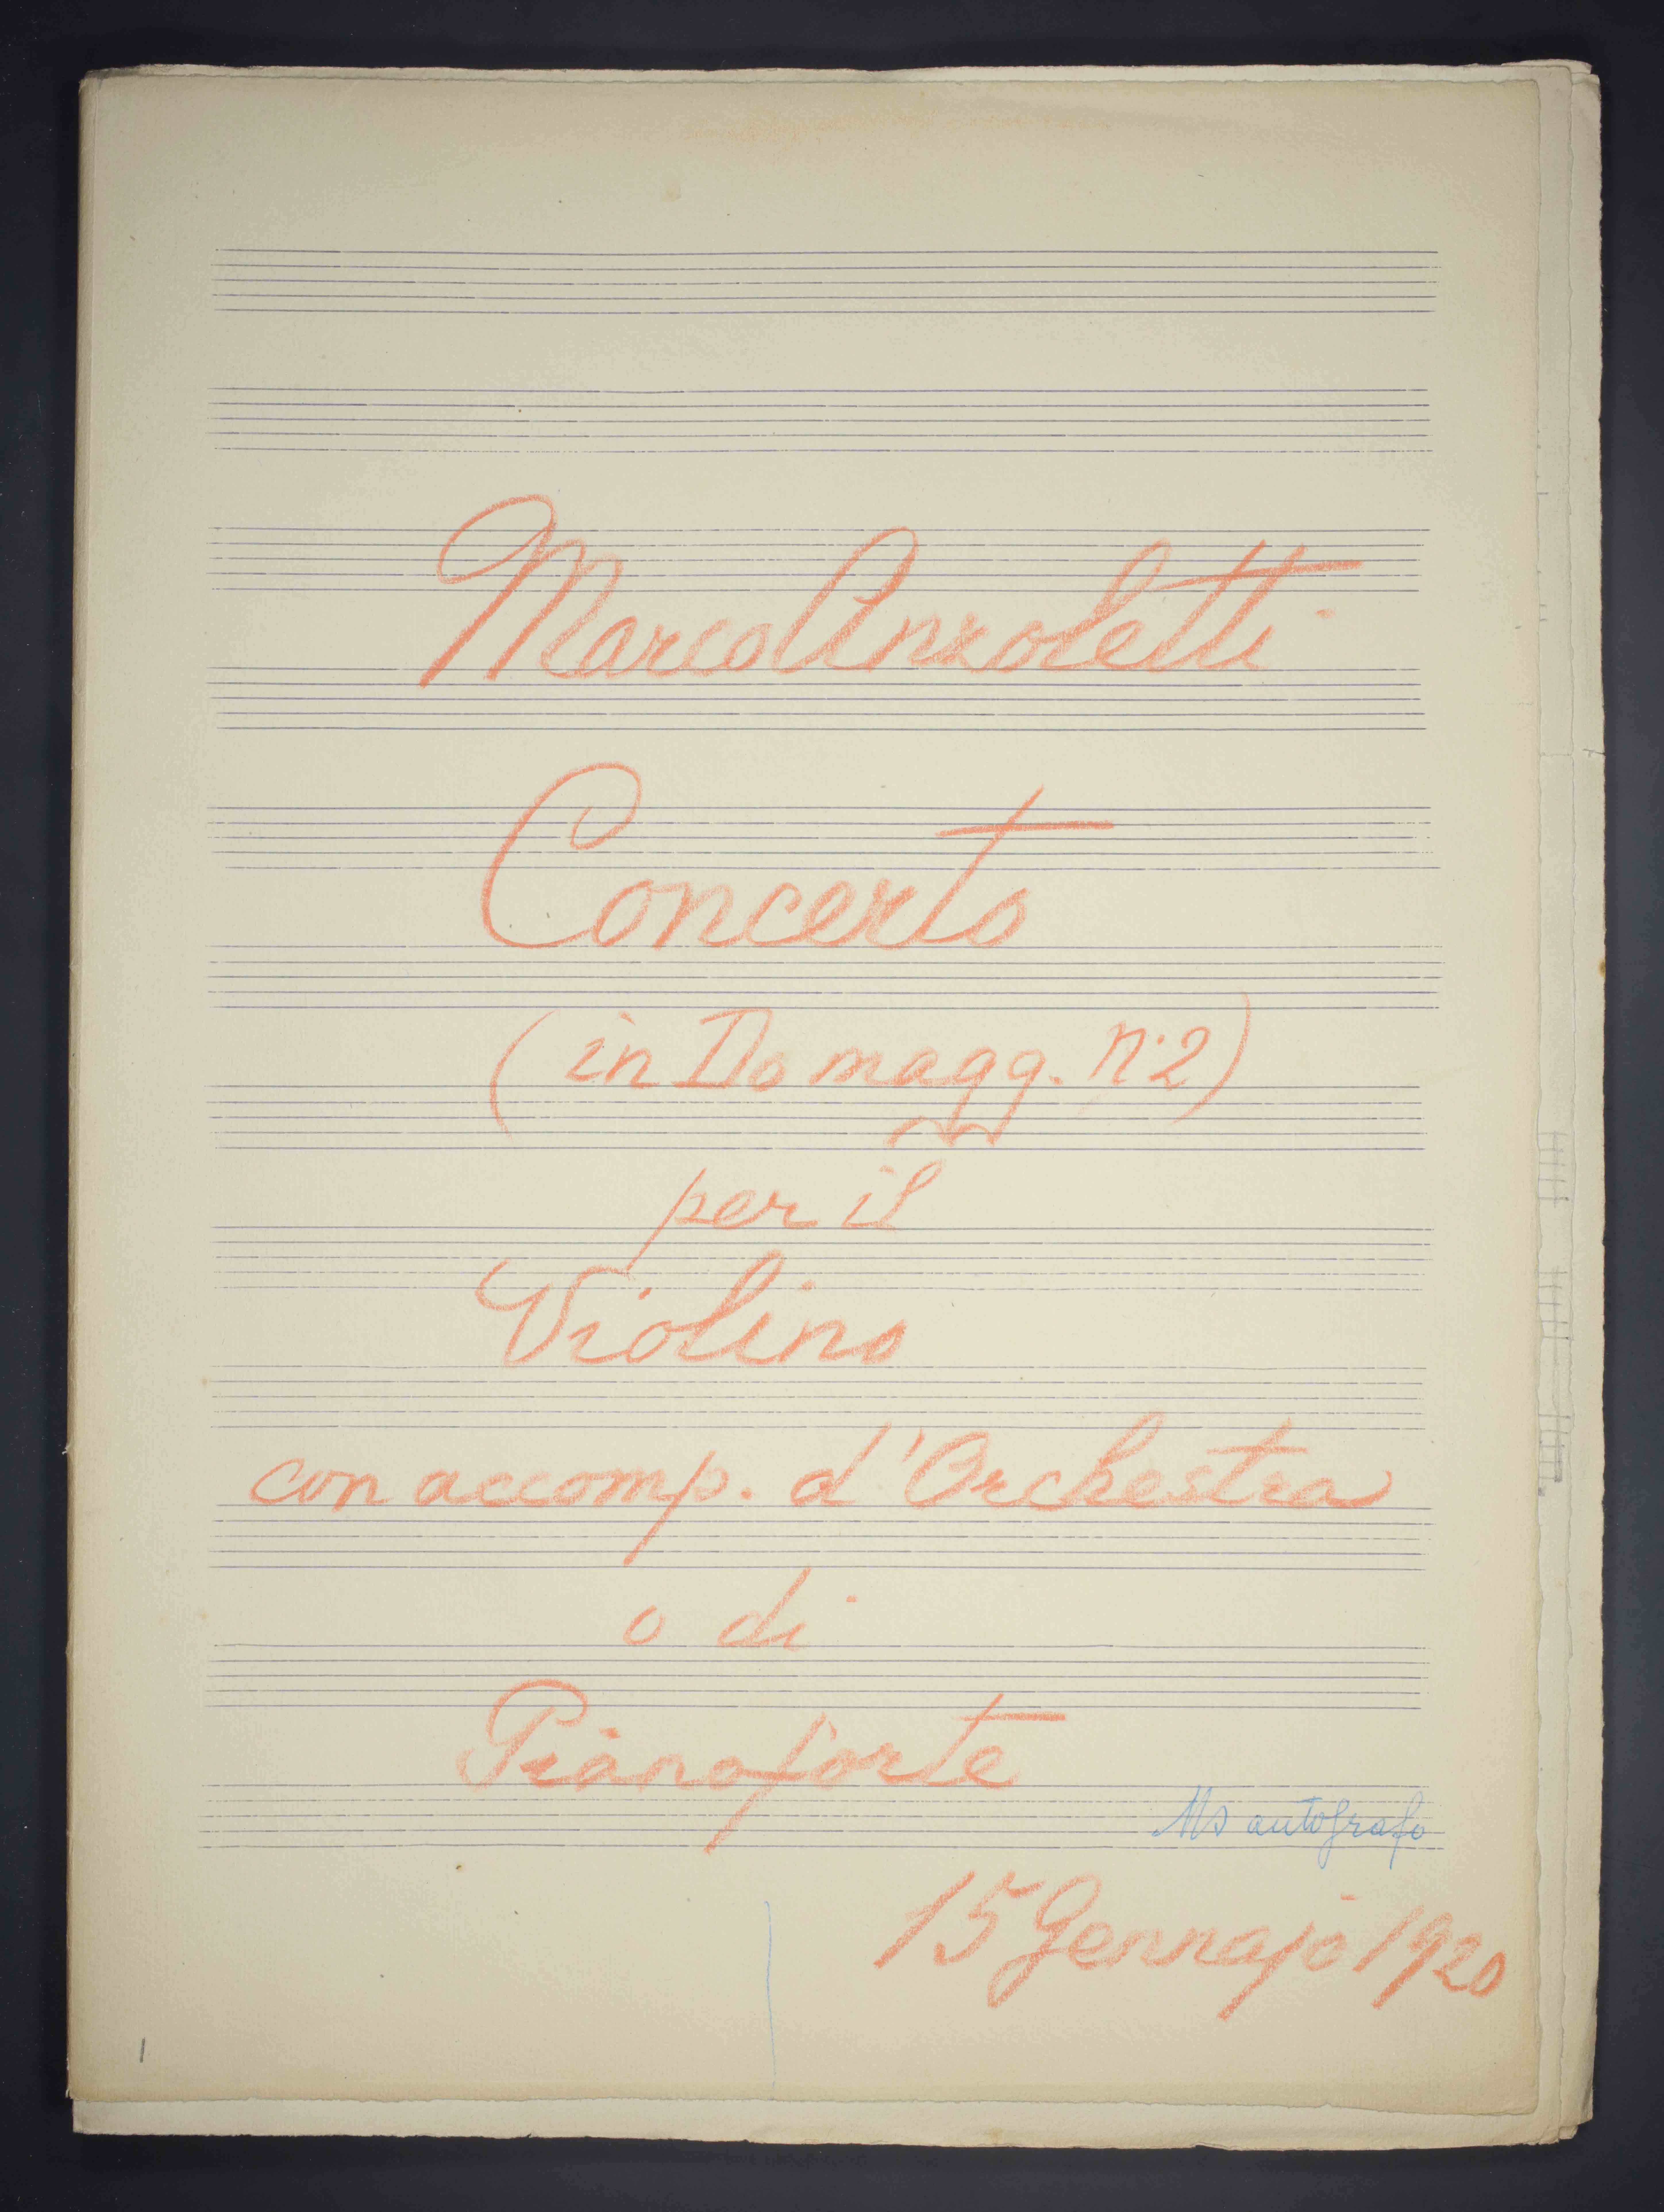 Marco Anzoletti
Concerto
(in Do magg. N.º 2)
per il
Violino
con accomp. d'Orchestra
o di
Pianoforte
Ms autografo
15 Gennajo 1920
1